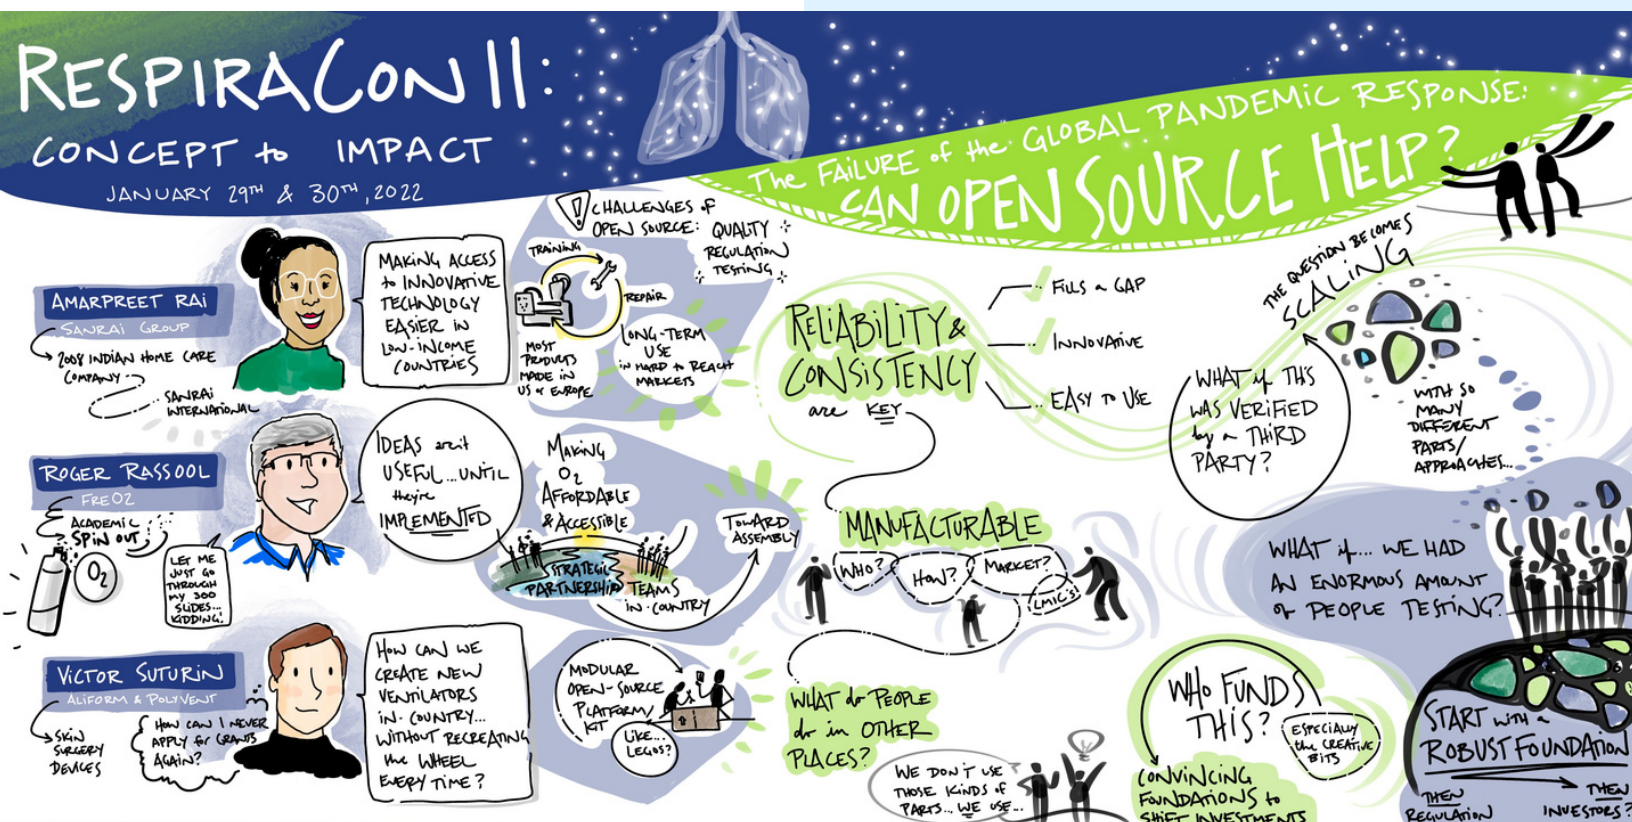 RESPIRACON II:
CONCEPT to IMPACT
JANUARY 29TH & 30TH, 2022
The FAILURE of the GLOBAL PANDEMIC RESPONSE:
CAN OPEN SOURCE HELP?
AMARPREET RAI
SANRAI GROUP
2008 INDIAN HOME CARE
COMPANY
SANRAI
INTERNATIONAL
MAKING ACCESS
to INNOVATIVE
TECHNOLOGY
EASIER IN
LOW-INCOME
COUNTRIES
! CHALLENGES of
OPEN SOURCE: QUALITY
REGULATION
TESTING
TRAINING
REPAIR
MOST
PRODUCTS
MADE IN
US or EUROPE
LONG-TERM
USE
in HARD to REACH
MARKETS
ROGER RASSOOL
FREO2
ACADEMIC
SPIN OUT
O2
LET ME
JUST GO
THROUGH
MY 300
SLIDES...
KIDDING!
IDEAS aren't
USEFUL...UNTIL
they're
IMPLEMENTED
MAKING
O2
AFFORDABLE
& ACCESSIBLE
STRATEGIC
PARTNERSHIPS
TEAMS
IN-COUNTRY
TOWARD
ASSEMBLY
VICTOR SUTURIN
ALIFORM & POLYVENT
SKIN
SURGERY
DEVICES
HOW CAN I NEVER
APPLY for GRANTS
AGAIN?
HOW CAN WE
CREATE NEW
VENTILATORS
IN-COUNTRY...
WITHOUT RECREATING
the WHEEL
EVERY TIME?
MODULAR
OPEN-SOURCE
PLATFORM/
KIT
LIKE...
LEGOS?
RELIABILITY &
CONSISTENCY
are KEY
FILLS a GAP
INNOVATIVE
EASY TO USE
MANUFACTURABLE
WHO?
HOW?
MARKET?
LMIC'S!
WHAT do PEOPLE
do in OTHER
PLACES?
WE DON'T USE
THOSE KINDS of
PARTS... WE USE...
THE QUESTION BECOMES
SCALING
WHAT if THIS
WAS VERIFIED
by a THIRD
PARTY?
WITH SO
MANY
DIFFERENT
PARTS/
APPROACHES...
WHAT if... WE HAD
AN ENORMOUS AMOUNT
of PEOPLE TESTING?
WHO FUNDS
THIS?
ESPECIALLY
the CREATIVE
BITS
CONVINCING
FOUNDATIONS to
SHIFT INVESTMENTS
START with a
ROBUST FOUNDATION
THEN
REGULATION
THEN
INVESTORS?